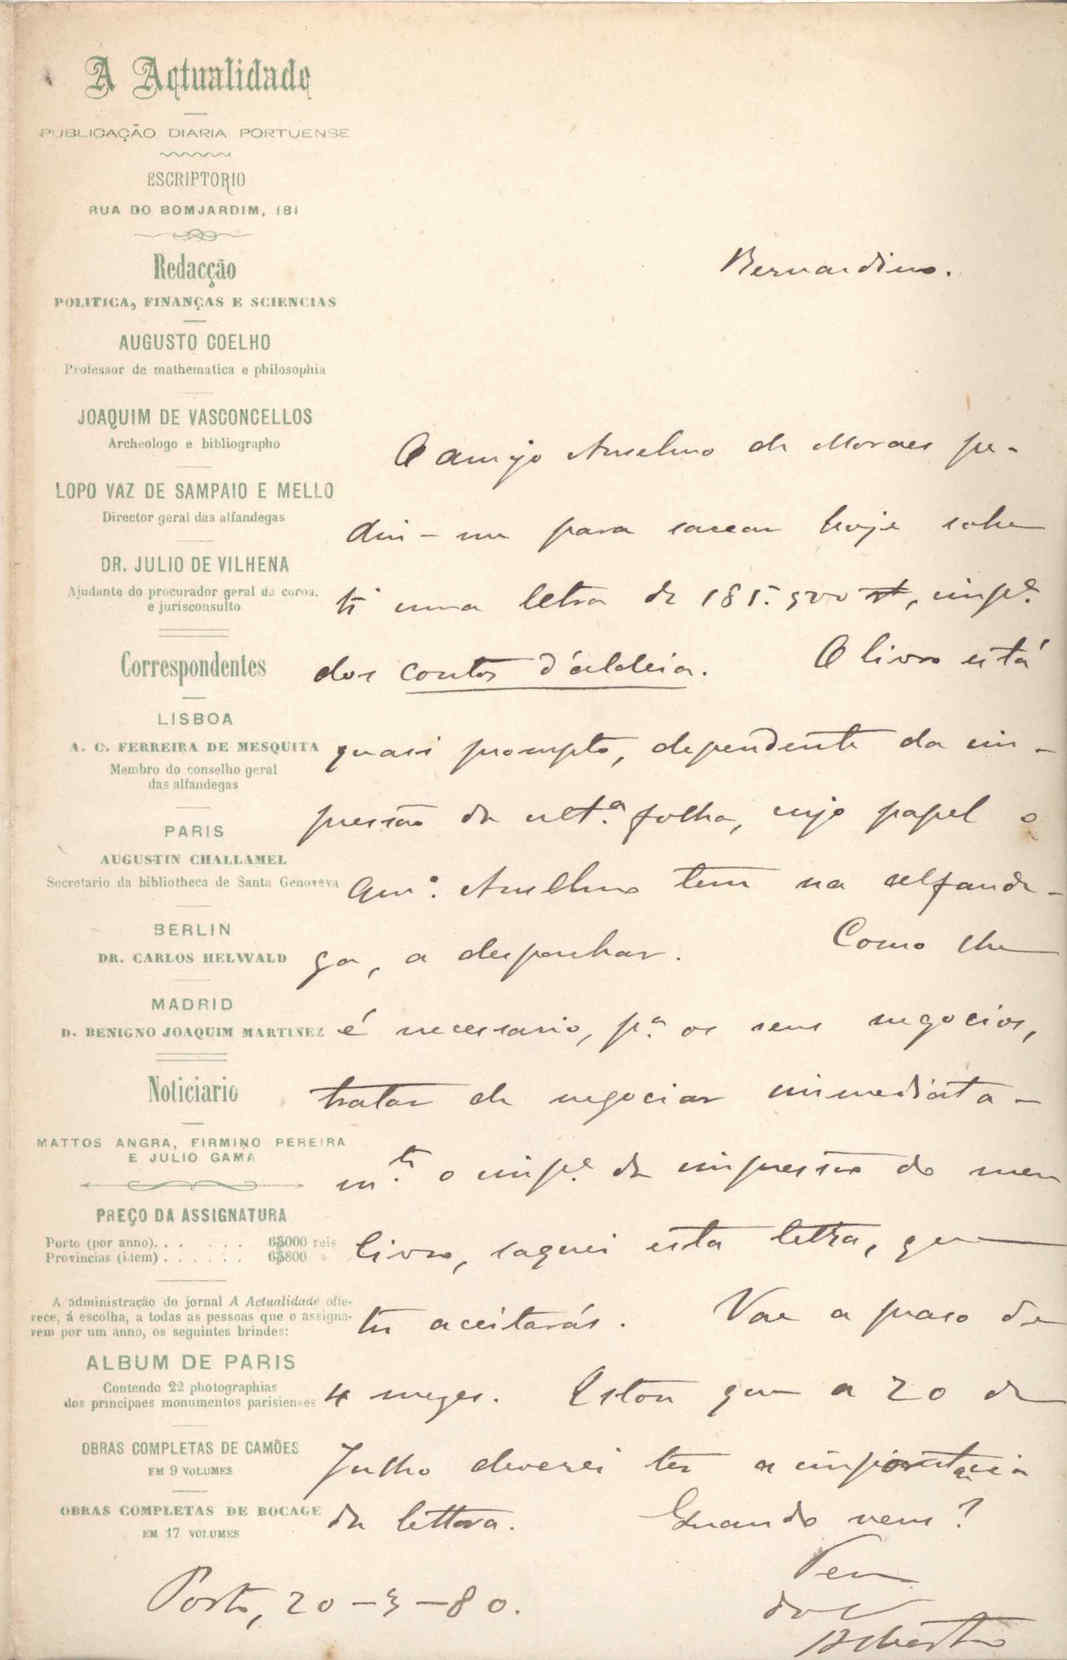 A Actualidade
PUBLICAÇÃO DIARIA PORTUENSE
ESCRIPTORIO
RUA DO BOMJARDIM, 181
Redacção
POLITICA, FINANÇAS E SCIENCIAS
AUGUSTO COELHO
Professor de mathematica e philosophia
JOAQUIM DE VASCONCELLOS
Archeologo e bibliographo
LOPO VAZ DE SAMPAIO E MELLO
Director geral das alfandegas
DR. JULIO DE VILHENA
Ajudante do procurador geral da coroa,
e jurisconsulto
Correspondentes
LISBOA
A. C. FERREIRA DE MESQUITA
Membro do conselho geral
das alfandegas
PARIS
AUGUSTIN CHALLAMEL
Secretario da bibliotheca de Santa Genoveva
BERLIN
DR. CARLOS HELWALD
MADRID
D. BENIGNO JOAQUIM MARTINEZ
Noticiario
MATTOS ANGRA, FIRMINO PEREIRA
E JULIO GAMA
PREÇO DA ASSIGNATURA
Porto (por anno). . . . . . 6$000 reis
Provincias (idem) . . . . . . 6$800 »
A administração do jornal A Actualidade offe-
rece, á escolha, a todas as pessoas que o assigna-
rem por um anno, os seguintes brindes:
ALBUM DE PARIS
Contendo 22 photographias
dos principaes monumentos parisienses
OBRAS COMPLETAS DE CAMÕES
EM 9 VOLUMES
OBRAS COMPLETAS DE BOCAGE
EM 17 VOLUMES
Bernardino.
O amigo Anselmo de Moraes pe-
diu-me para saccar hoje sobre
ti uma letra de , imp.e
dos contos d'aldeia. O livro está
quasi prompto, dependente da im-
pressão da ult.a folha, cujo papel o
am.o Anselmo tem na alfande-
ga, a despachar. Como lhe
é necessario, p.a os seus negocios,
tratar de negociar immediata-
m.te o imp.e da impressão do meu
livro, saquei esta lettra, que
tu aceitarás. Vae a praso de
4 mezes. Estou que a 20 de
Julho deverei ter a importancia
da lettra. Quando vens?
Teu
do C
Alberto
Porto, 20-3-80.